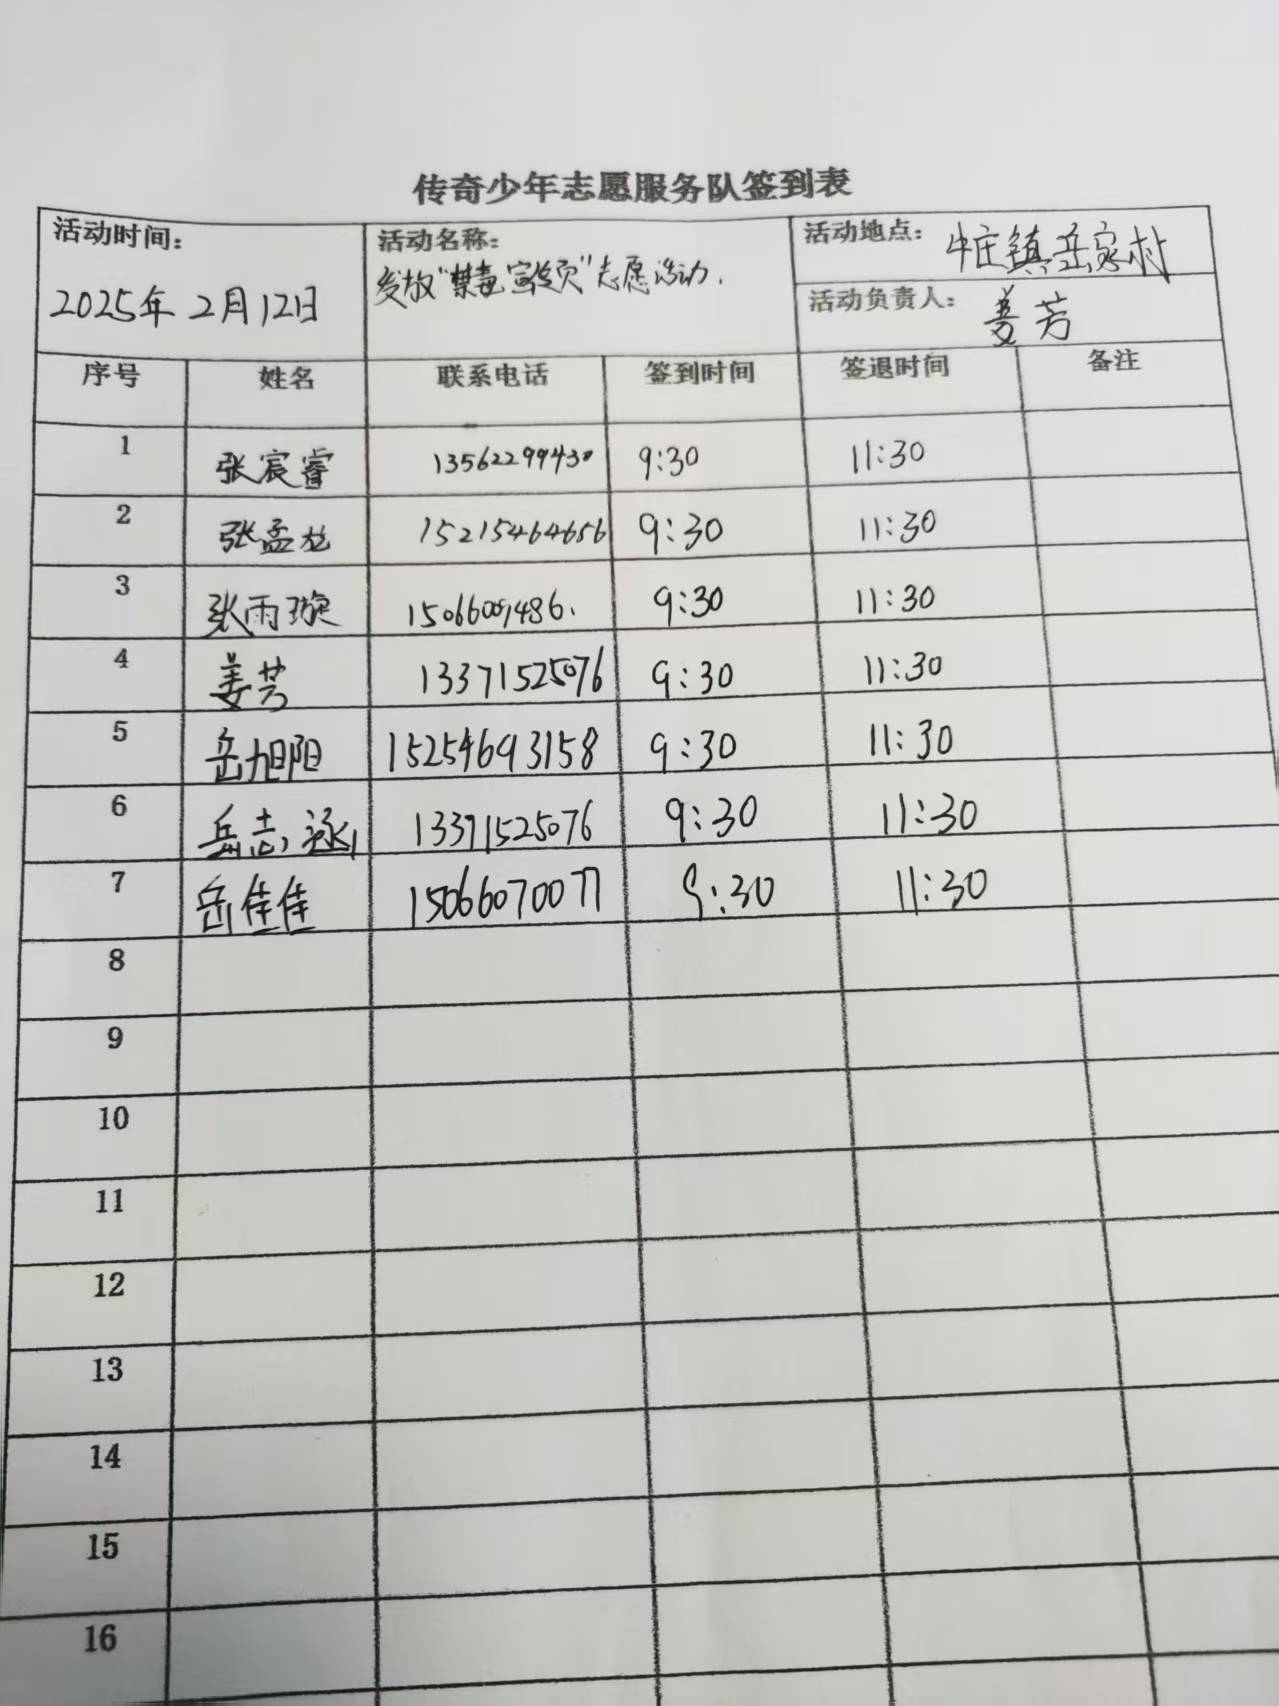 传奇少年志愿服务队签到表
活动时间： 活动名称： 活动地点：牛庄镇岳家村
2025年2月12日 发放“禁毒宣传页”志愿活动.
活动负责人：姜芳
序号 姓名 联系电话 签到时间 签退时间 备注
1 张宸睿 13562299430 9:30 11:30
2 张孟龙 15215464656 9:30 11:30
3 张雨璇 9:30 11:30
4 姜芳 13371525076 9:30 11:30
5 岳旭阳 15254693158 9:30 11:30
6 岳志泳 13371525076 9:30 11:30
7 岳佳佳 15066070077 9:30 11:30
8
9
10
11
12
13
14
15
16